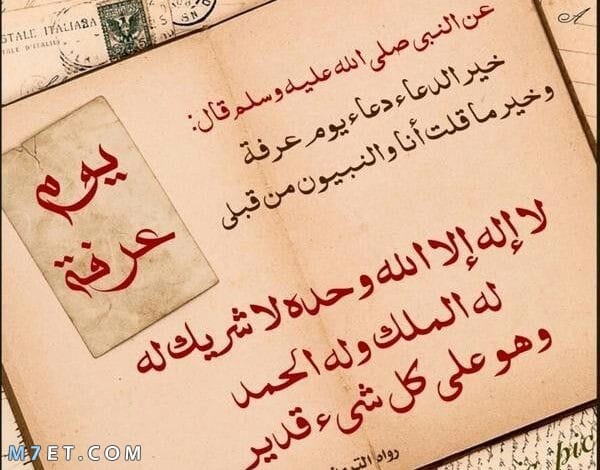 STALE ITALIANA
عن النبى صلى الله عليه وسلم قال:
خير الدعاء دعاء يوم عرفة
وخير ما قلت أنا والنبيون من قبلى
يوم
عرفة
لا إله إلا الله وحده لا شريك له
له الملك وله الحمد
وهو على كل شىء قدير
رواه
M7ET.COM